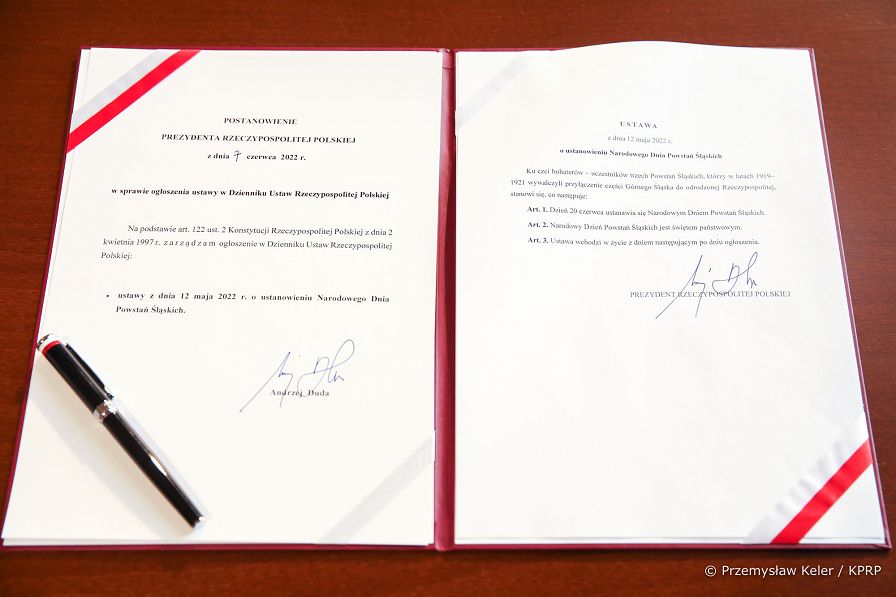 POSTANOWIENIE
PREZYDENTA RZECZYPOSPOLITEJ POLSKIEJ
z dnia 7 czerwca 2022 r.
w sprawie ogłoszenia ustawy w Dzienniku Ustaw Rzeczypospolitej Polskiej
Na podstawie art. 122 ust. 2 Konstytucji Rzeczypospolitej Polskiej z dnia 2
kwietnia 1997 r. zarządzam ogłoszenie w Dzienniku Ustaw Rzeczypospolitej
Polskiej:
• ustawy z dnia 12 maja 2022 r. o ustanowieniu Narodowego Dnia
Powstań Śląskich.
Andrzej Duda
USTAWA
z dnia 12 maja 2022 r.
o ustanowieniu Narodowego Dnia Powstań Śląskich
Ku czci bohaterów – uczestników trzech Powstań Śląskich, którzy w latach 1919–
1921 wywalczyli przyłączenie części Górnego Śląska do odrodzonej Rzeczypospolitej,
stanowi się, co następuje:
Art. 1. Dzień 20 czerwca ustanawia się Narodowym Dniem Powstań Śląskich.
Art. 2. Narodowy Dzień Powstań Śląskich jest świętem państwowym.
Art. 3. Ustawa wchodzi w życie z dniem następującym po dniu ogłoszenia.
PREZYDENT RZECZYPOSPOLITEJ POLSKIEJ
© Przemysław Keler / KPRP